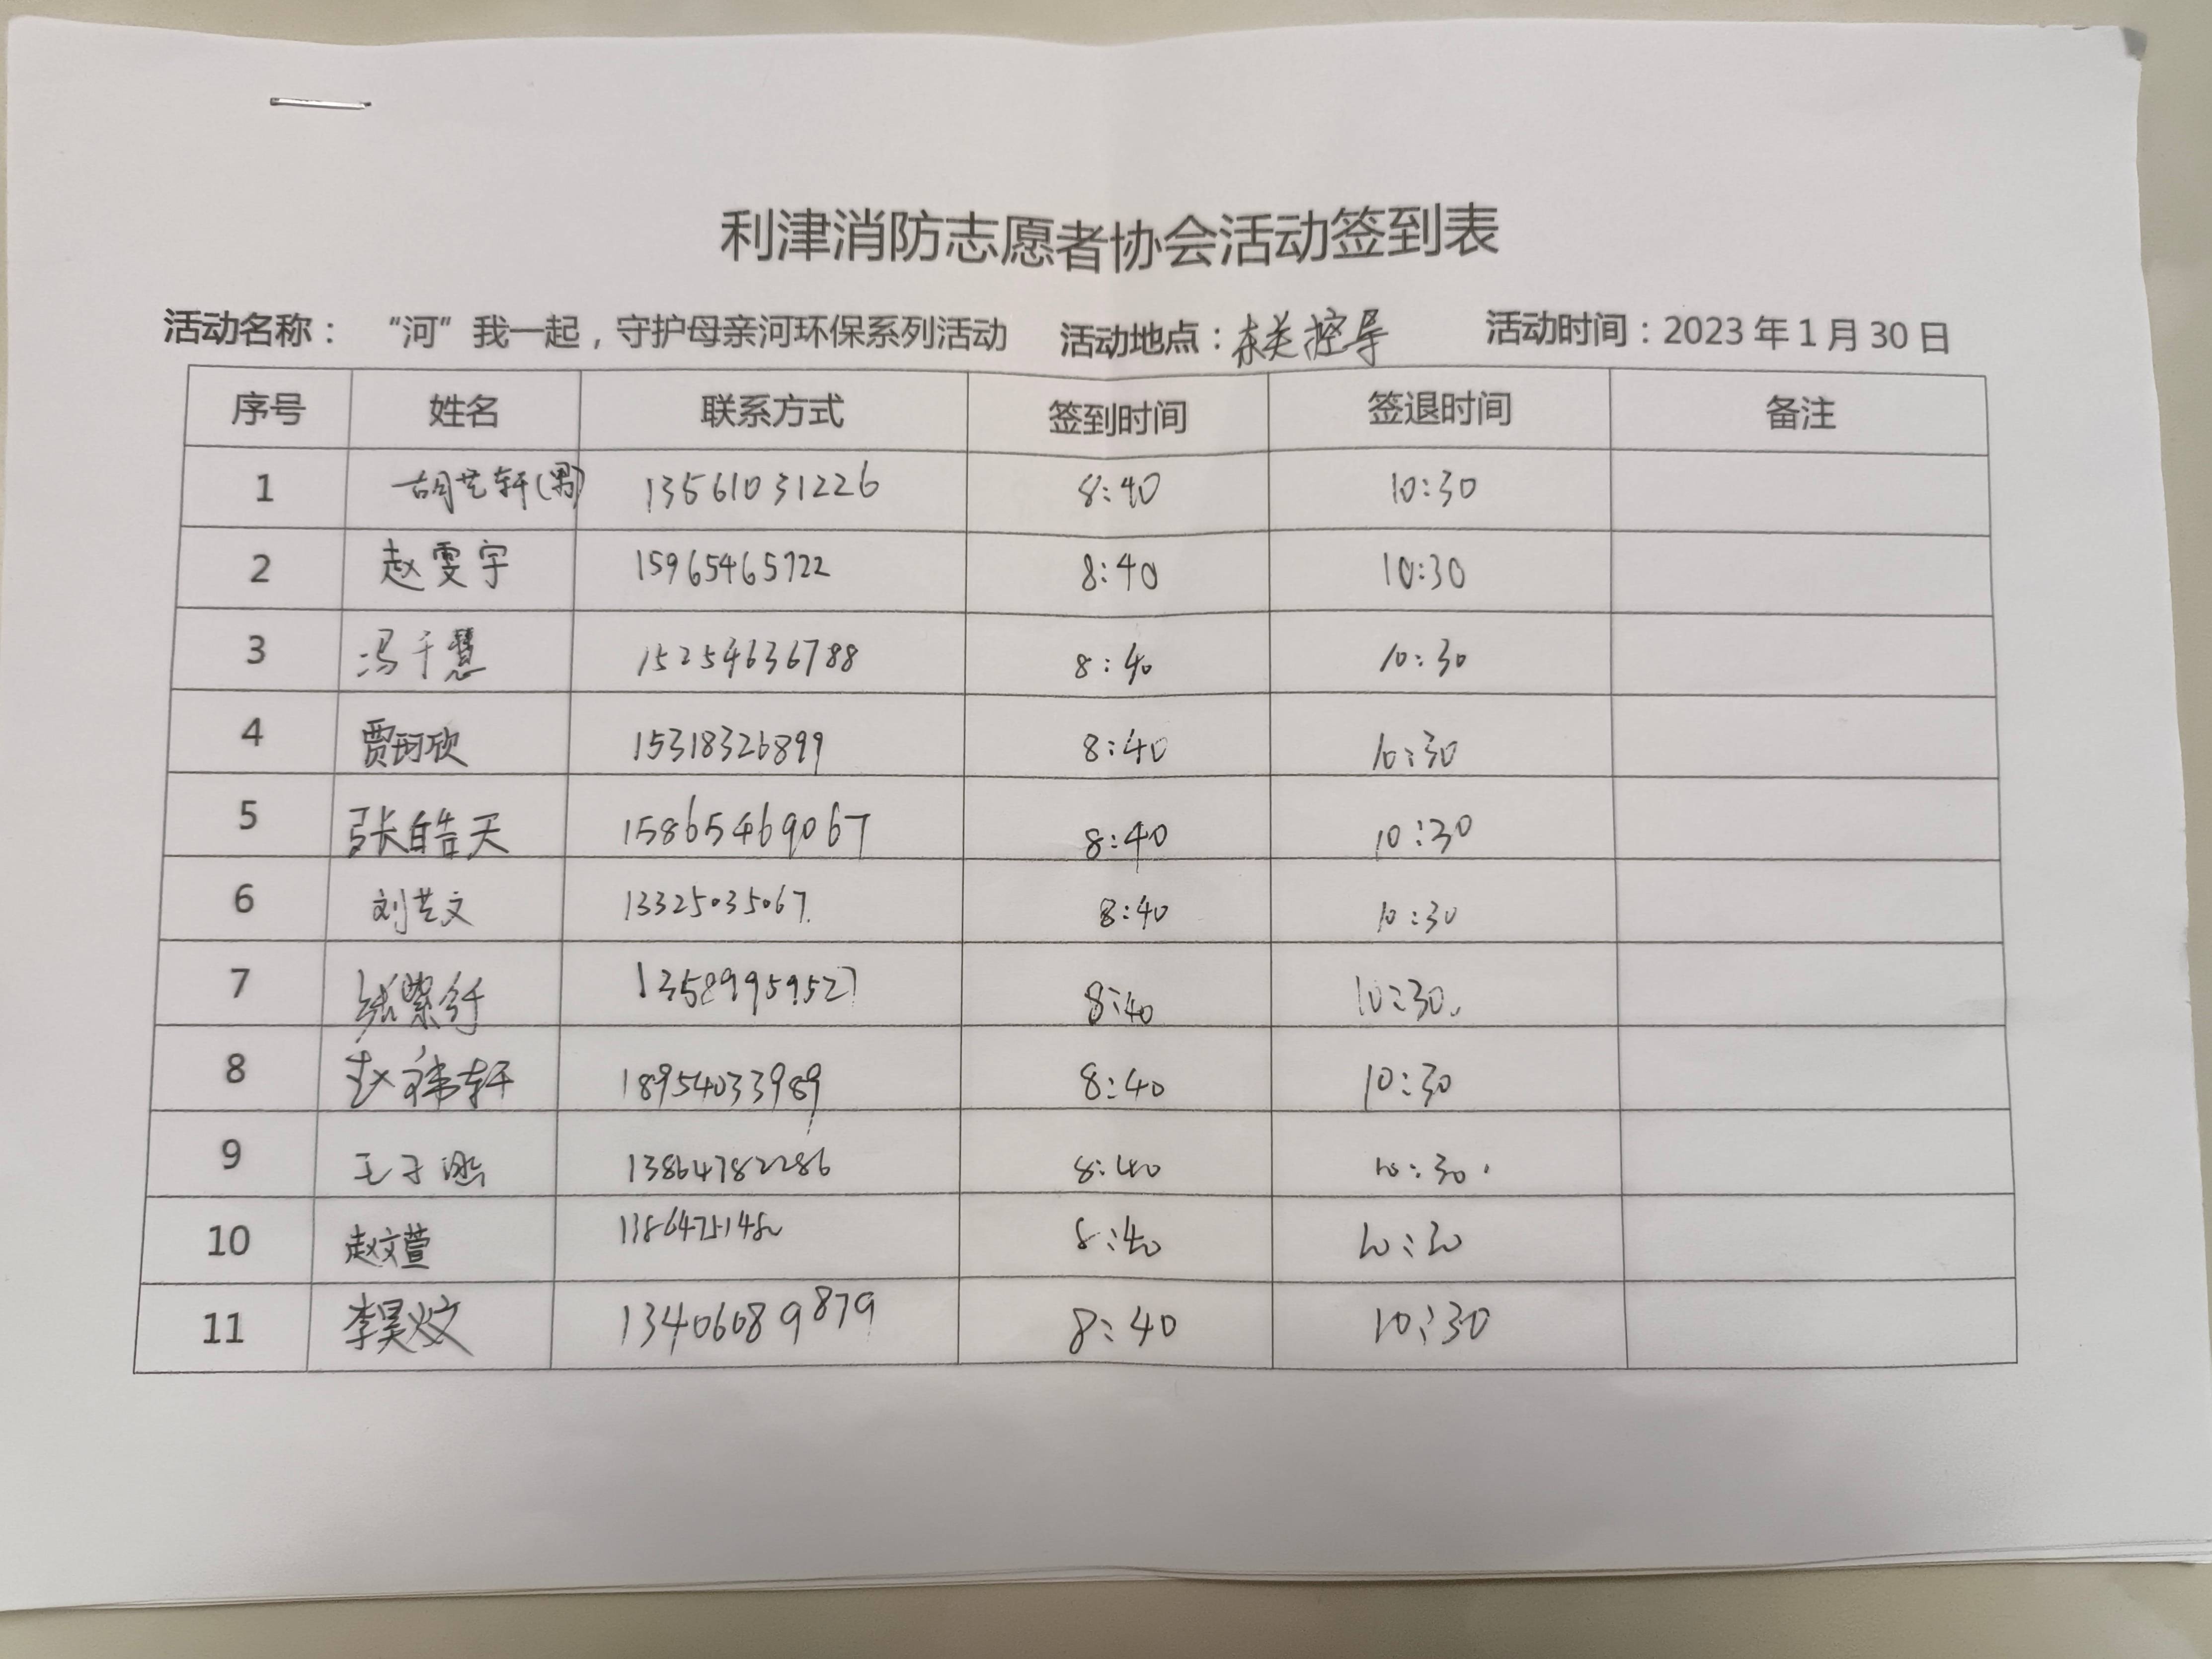 利津消防志愿者协会活动签到表
活动名称： “河”我一起，守护母亲河环保系列活动 活动地点：东关控导 活动时间：2023年1月30日
序号 姓名 联系方式 签到时间 签退时间 备注
1 胡艺轩(男) 13561031226 8:40 10:30
2 赵雯宇 15965465722 8:40 10:30
3 冯千慧 15254636788 8:40 10:30
4 贾玥欣 15318326899 8:40 10:30
5 张皓天 15865469067 8:40 10:30
6 刘艺文 13325035067 8:40 10:30
7 张紫舒 13589959527 8:40 10:30
8 赵祎轩 18954033989 8:40 10:30
9 王子 13864782286 8:40 10:30
10 赵文萱 8:40 10:30
11 李昊炆 13406089879 8:40 10:30